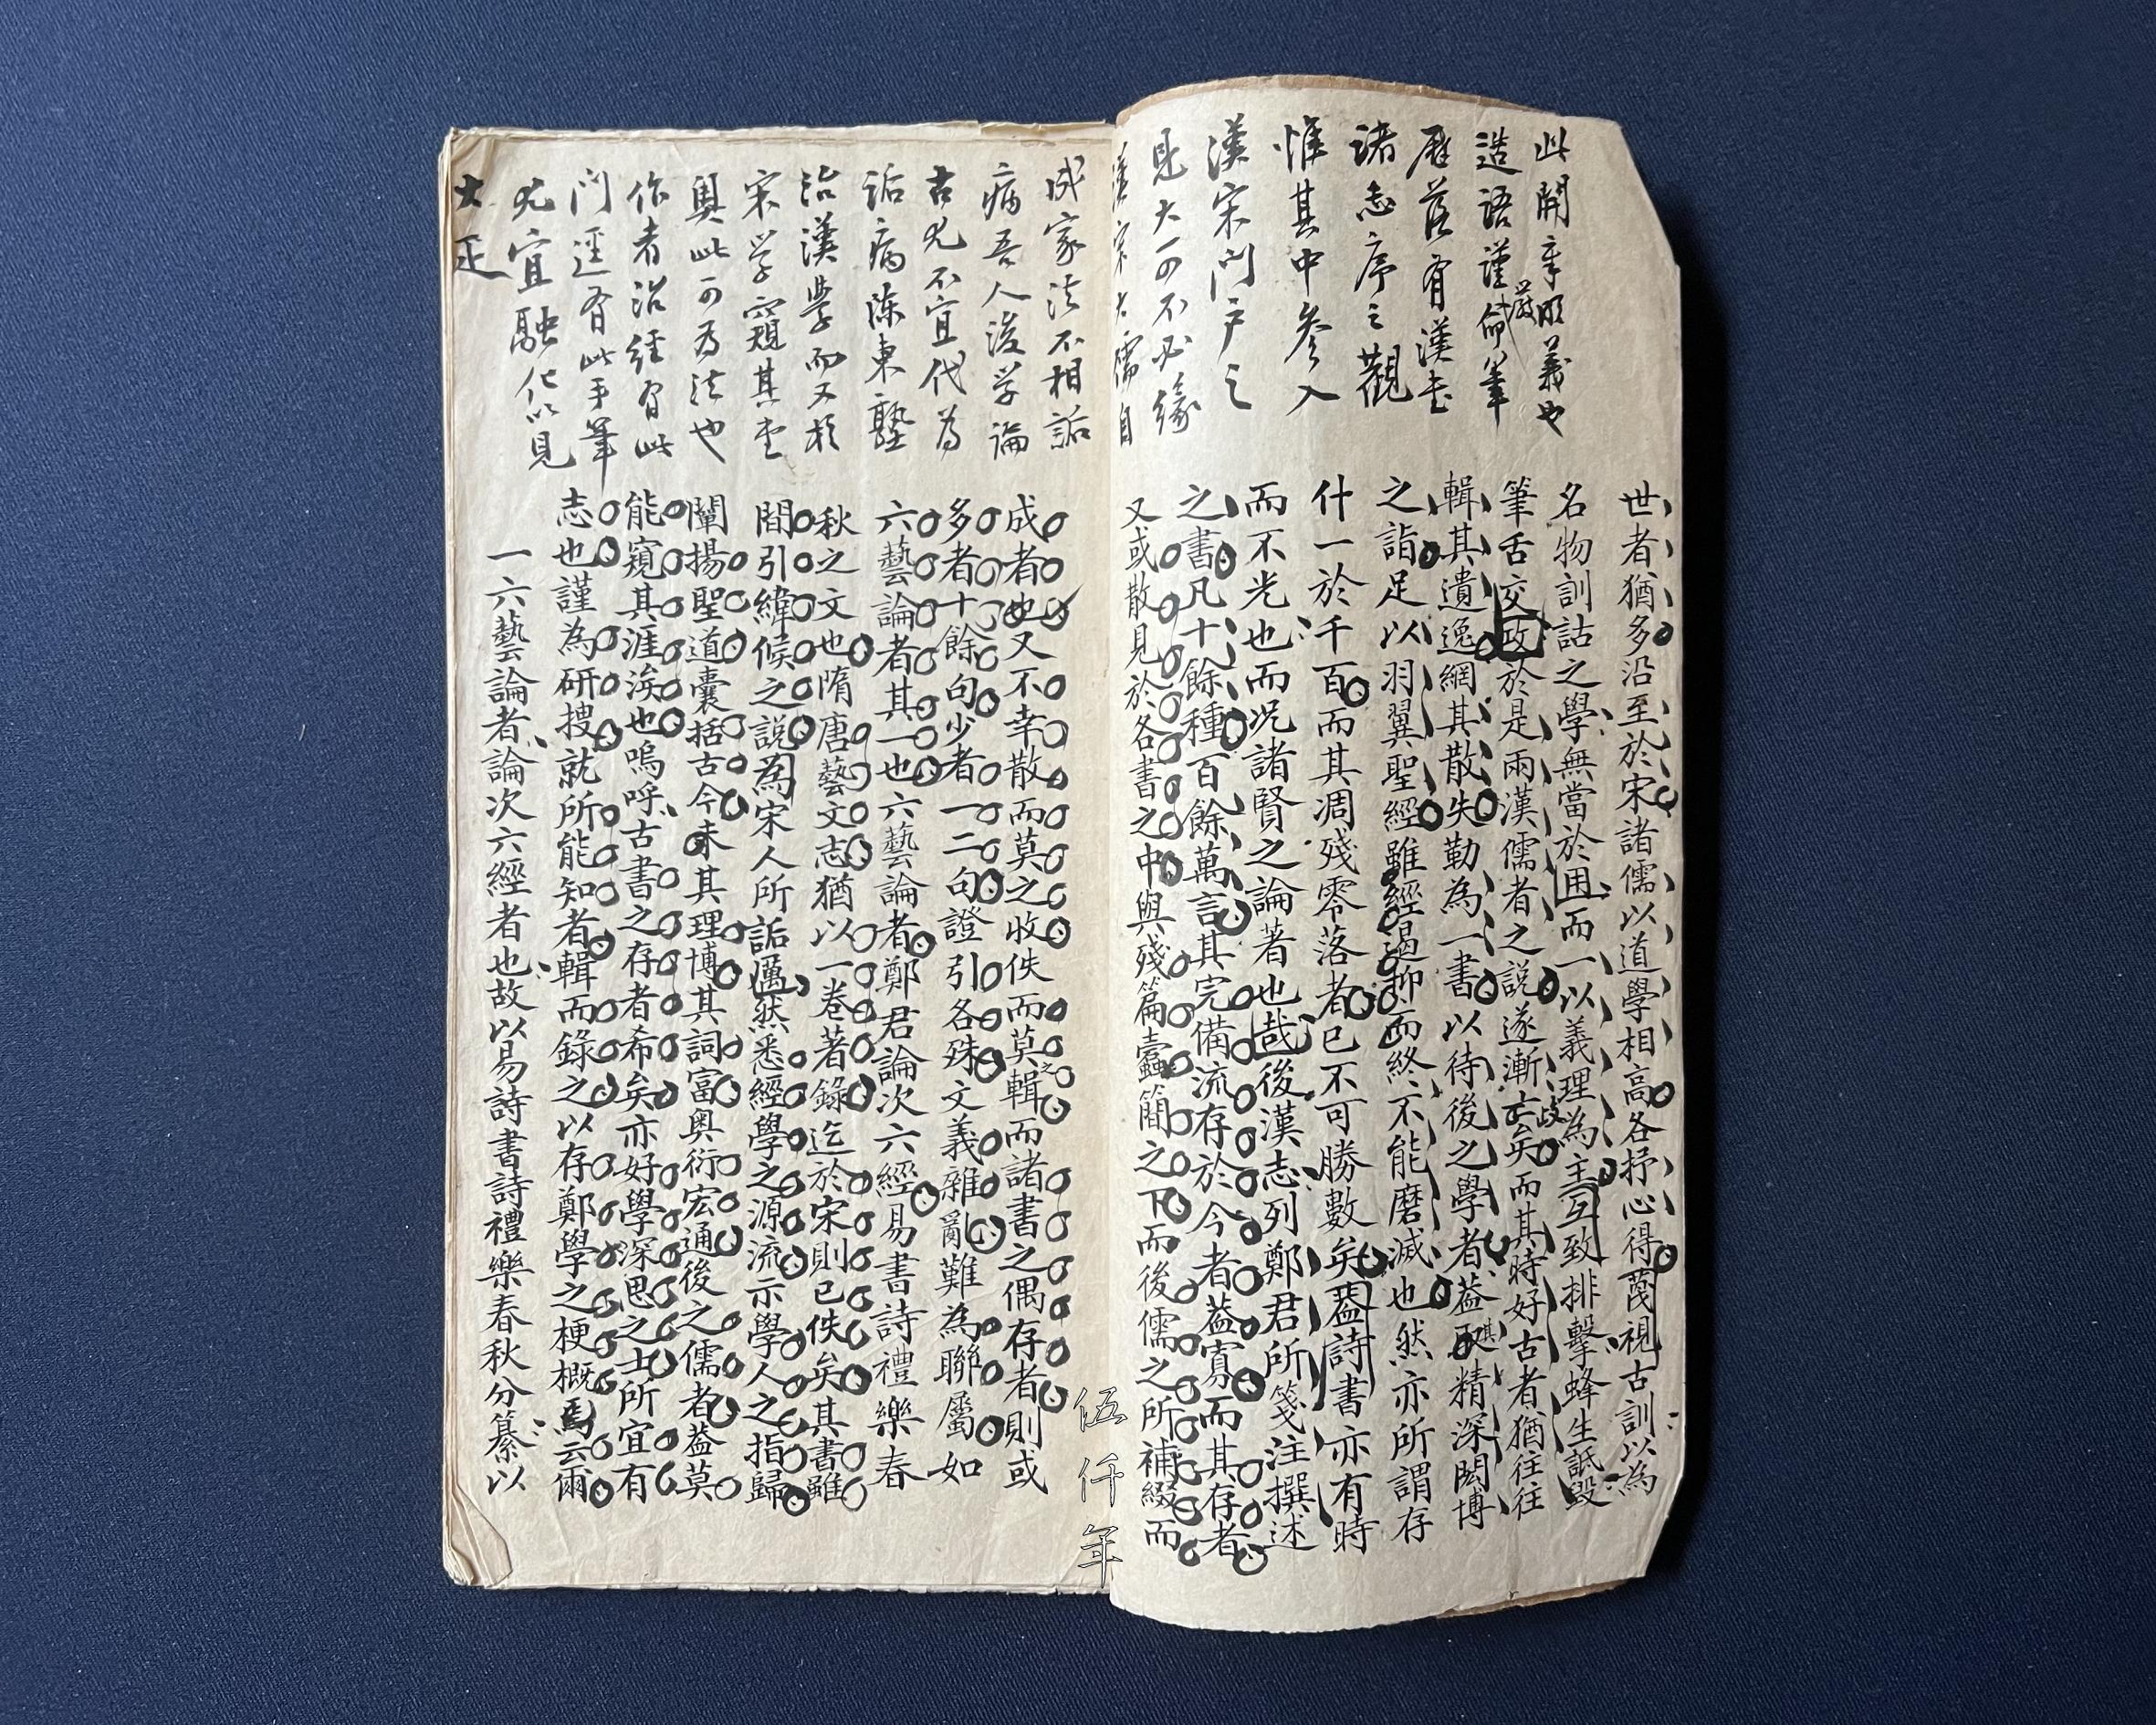 此開章明義也
造語謹嚴命筆
歷落有漢書
諸志序之觀
惟其中參入
漢宋門戶之
見大可不必緣
漢宋大儒自
世者猶多沿至於宋諸儒以道學相高各抒心得蔑視古訓以為
名物訓詁之學無當於用而一以義理為主互致排擊蜂生詆毀
筆舌交攻於是兩漢儒者之說遂漸亡矣而其時好古者猶往往
輯其遺逸網其散失勒為一書以待後之學者蓋其精深閎博
之詣足以羽翼聖經雖經遏抑而終不能磨滅也然亦所謂存
什一於千百而其凋殘零落者已不可勝數矣蓋詩書亦有時
而不光也而况諸賢之論著也哉後漢志列鄭君所箋注撰述
之書凡十餘種百餘萬言其完備流存於今者蓋寡而其存者
又或散見於各書之中與殘篇蠹簡之下而後儒之所補綴而
成家法不相詬
病吾人後学論
古尤不宜代為
詬病陈東塾
治漢學而又於
宋学窺其堂
奥此可為法也
作者治経有此
門逕有此手筆
尤宜融化以見
大正
成者也又不幸散而莫之收佚而莫之輯而諸書之偶存者則或
多者十餘句少者一二句證引各殊文義雜亂難為聯屬如
六藝論者其一也六藝論者鄭君論次六經易書詩禮樂春
秋之文也隋唐藝文志猶以一卷著錄迄於宋則已佚矣其書雖
間引緯候之說為宋人所詬厲然悉經學之源流示學人之指歸
闡揚聖道囊括古今來其理博其詞富奥衍宏通後之儒者蓋莫
能窺其涯涘也嗚呼古書之存者希矣亦好學深思之士所宜有
志也謹為研搜就所能知者輯而錄之以存鄭學之梗概焉云爾
一六藝論者論次六經者也故以易詩書詩禮樂春秋分纂以
伍仟年